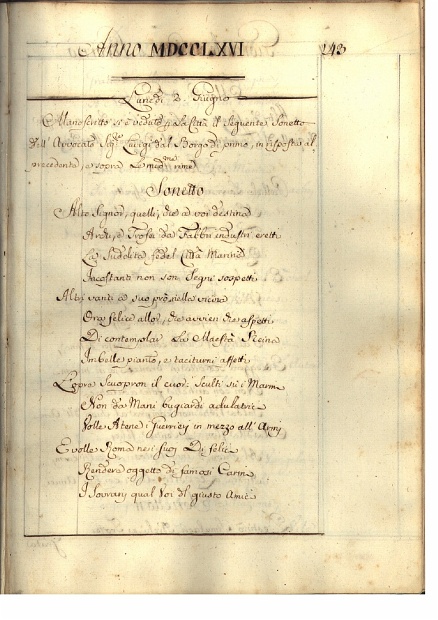 Anno MDCCLXVI
243
Lunedì 2. Giugno
Manoscritto si è veduto p. la Città il seguente Sonetto
dell' Avvocato Sig.r Luigi dal Borgo di primo, in risposta al
precedente, e sopra le med.me rime
Sonetto
Alto Signor, quelli, che a voi destina
Archi, e Trofei da Fabbri industri eretti
La fedeltà
Incostanti non son Segni sospetti
Altri vanti a suo prò
Ora felice allor, che avvien che aspetti
Di contemplar la Maestà vicina
Imbelle pianto, e taciturni affetti
L'opra scuopron il cuor: sculti su i Marmi
Non da Mani bugiardi adulatrici
Volle Atene i Guerrier in mezzo all' Armi
E volle Roma ne i suoi Dì felici
Rendere oggetto di famosi Carmi
I Sovrani qual Voi del giusto Amici